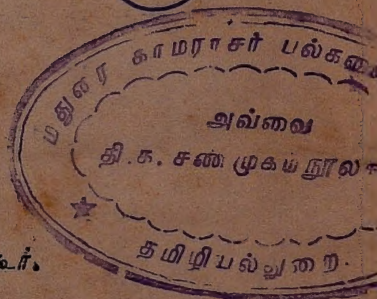 மதுரை காமராசர் பல்கலை
அவ்வை
தி.க. சண்முகம் நூலக
தமிழியல்துறை.
டீர்.